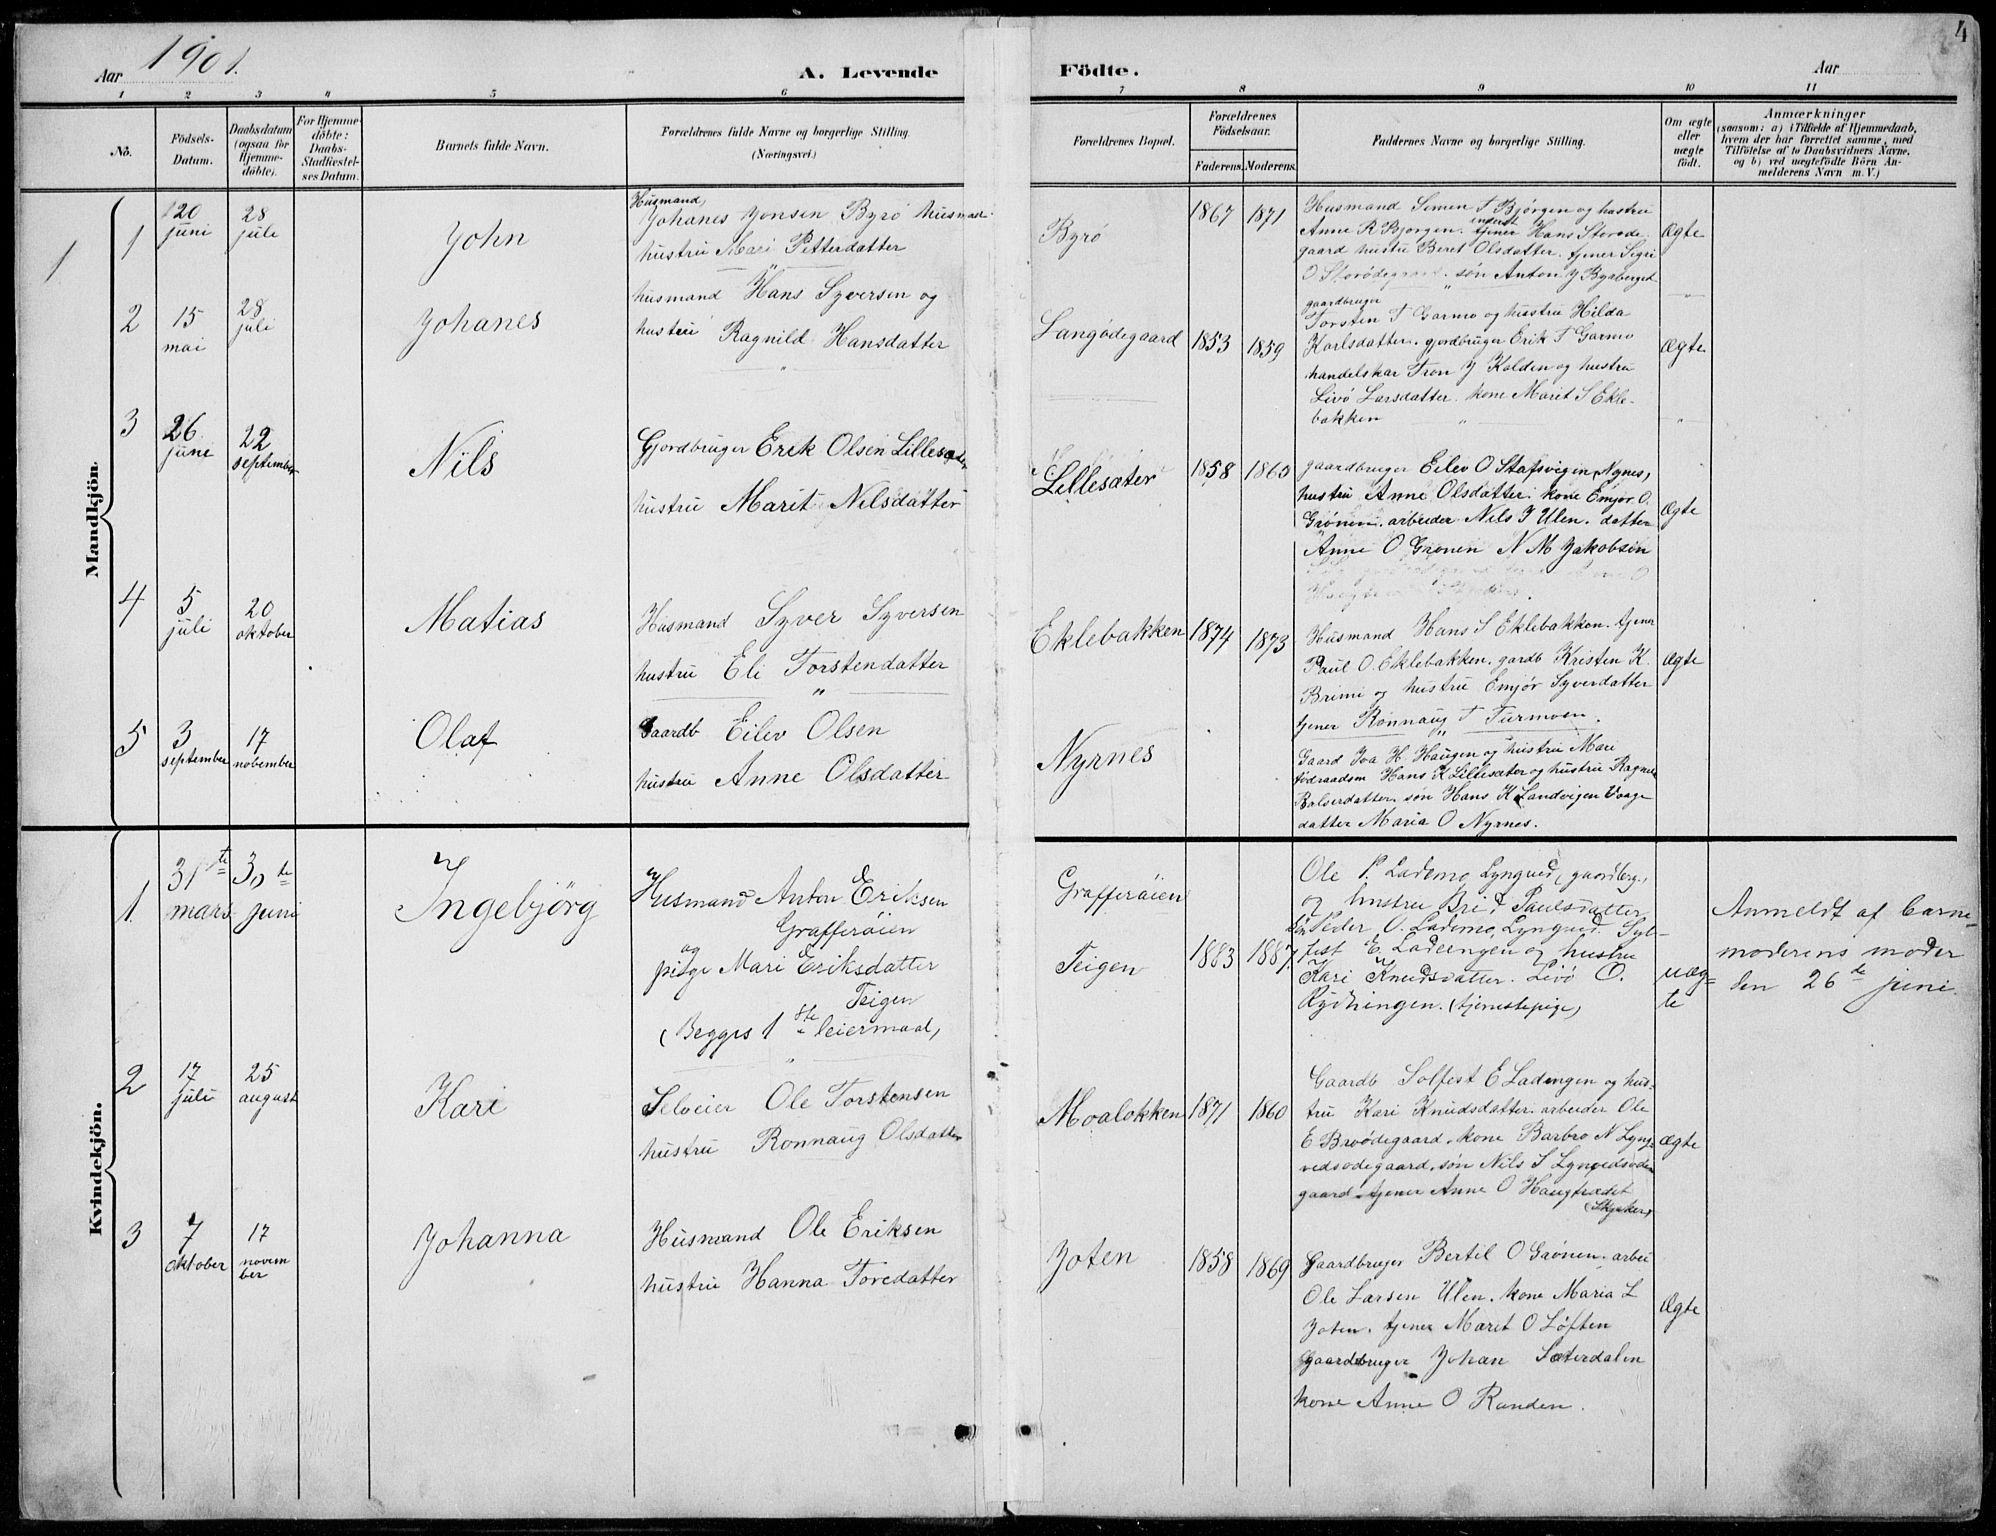 4
Aar 1901.
A. Levende
Födte.
Aar
1 2 3 4 5 6 7 8 9 10 11
Nö.
Födsels-Datum.
Daabsdatum (ogsaa for Hjemmedöbte).
For Hjemmedöbte: Daabs-Stadfæstelses Datum.
Barnets fulde Navn.
Forældrenes fulde Navne og borgerlige Stilling.
(Næringsvei.)
Forældrenes Bopæl.
Forældrenes Födselsaar.
Faderens. Moderens.
Faddernes Navne og borgerlige Stilling.
Om ægte eller uægte födt.
Anmærkninger
(saasom: a) i Tilfælde af Hjemmedaab,
hvem der har forrettet samme, med
Tilföielse af to Daabsvidners Navne,
og b) ved uægtefödte Börn Anmelderens Navn m. V.)
Mandkjön.
1
1
20 juni
28 jule
John
Husmand
Johanes Jonsen Byrø husmand
hustru Mari Petterdatter
Byrø
1867 1871
Husmand Simen T Bjørgen og hustru
Anne R Bjorgen. tjener Hans Storøde
gaard hustru Beret Olsdatter. tjener Sigri
O Storødegaard. søn Anton J
Ægte
2
15 mai
28 juli
Johanes
husmand Hans Syversen og
hustru Ragnild Hansdatter
Langødegaard
1853 1859
gaardbruger
Torsten T Garmo og hustru Hilda
Karlsdatter. gjordbruger Erik T Garmo
handelskar Tron J Kolden og hustru
Livø Larsdatter. kone Marit S Ekle-
bakken
Ægte
3
26 juni
22 september
Nils
Gjordbruger Erik Olsen Lillesæter
hustru Marit Nilsdatter
Lillesæter
1858 1863
gaardbruger Eilev O Stafsvigen (Nyrnes)
hustru Anne Olsdatter. kone Emjør O.
Grønen. arbeider Nils J Ulen. datter
Anne O Grønen N M Jakobsen
Ægte
4
5 juli
20 oktober
Matias
Husmand Syver Syversen
hustru Eli Torstendatter
Eklebakken
1874 1873
Husmand Hans S Eklebakken. tjener
Paul O. Eklebakken. gardb Kristen K.
Brimi og hustru Emjør Syverdatter
tjener Rønnaug T Turmoen.
Ægte
5
3 september
17 nobember
Olaf
Gaardb Eilev Olsen
hustru Anne Olsdatter
Nyrnes
Gaard Iva H Haugen og hustru Mari
födraadsm Hans K Lillesæter og hustru Ragne
Balserdatter. søn Hans K Sandvigen Vaage
datter Maria O Nyrnes.
Kvindekjön.
1
31te mars
30te juni
Ingebjörg
Husmand Anton Eriksen
Grafferøien
og
pige Mari Eriksdatter
Teigen
(Begges 1ste leiermaal)
Grafferøien
Teigen
1883 1887.
Ole P. Lademo, Lyngved, (gaardbrg.)
og hustru Brit Paulsdatter
Søn Peder O. Lademo, Lyngved. Syl-
fest E. Ladeengen og hustru
Kari Knudsdatter. Livø O.
Rydningen. (tjenestepige)
uæg=
te
Anmeldt af barne-
moderens moder
den 26de juni.
2
17 juli
25 august
Kari
Selveier Ole Torstensen
hustru Ronnaug Olsdatter
Moaløkken
1871 1860
Gaardb Solfest E Ladengen og hus-
tru Kari Knudsdatter. arbeider Ole
E Brøødegaard. kone Barbro N Lyng-
vedsødegaard. søn Nils S Lyngvedsøde
gaard. tjener Anne O Haugtrædet
(Skjåker)
Ægte
3
7 oktober
17 november
Johanna
Husmand Ole Eriksen
hustru Hanna Toredatter
Joten
1858 1869
Gaardbruger Bertil O Grønen. arbei
Ole Larsen Ulen. kone Maria L
Joten. tjener Marit O Løften
gaardbruger Johan Sæterdalen
kone Anne O Randen.
Ægte